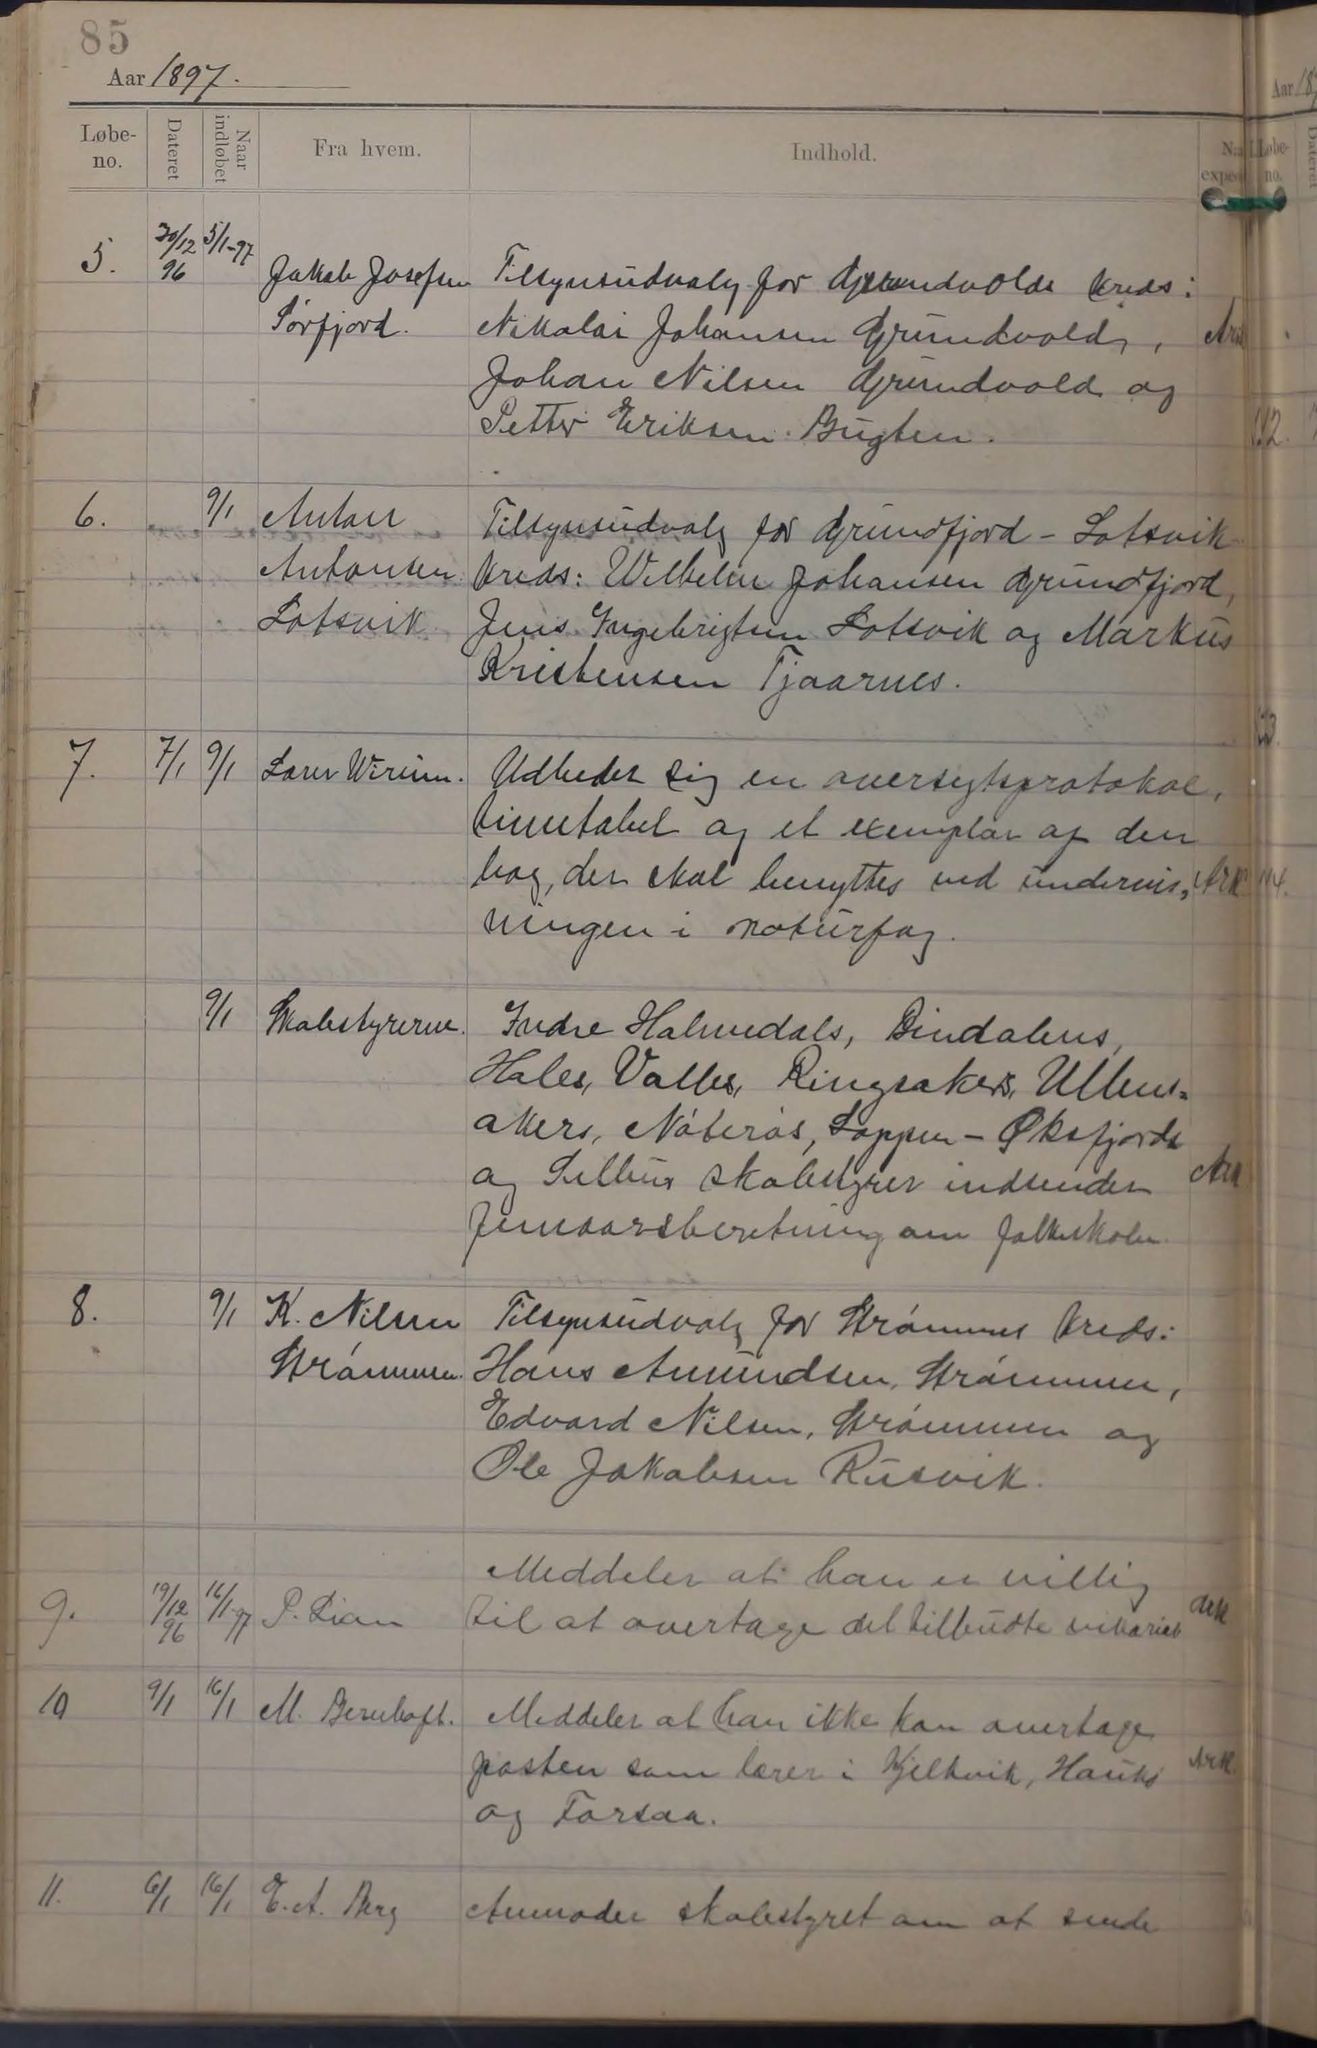 85
Aar 1897.
Løbe-no. Dateret Naar indløbet Fra hvem. Indhold.
5. 30/12 96 5/1-97 Jakob Josefsen Tilsynsudvalg for Grundvolds kreds:
Sørfjord. Nikolai Johansen Grundvold, Ark
Johan Nilsen Grundvold og
Petter Eriksen Bugten.
6. 9/1 Anton Tilsynsudvalg for Grundfjord - Lotsvik
Antonsen kreds: Wilhelm Johansen Grundfjord,
Lotsvik Jens Ingebrigtsen Lotsvik og Markus
Kristensen Tjaarnes.
7. 7/1 9/1 Lærer Udbeder sig en oversigtsprotokol,
timetabel og et exemplar af den
bog, der skal benyttes ved undervis- Ark
ningen i naturfag.
9/1 Skolestyrerne. Indre Holmedals, Bindalens,
Hales, Valles, Ringsakers, Ullens-
akers, Nøterøs, Loppen - Øksfjords
og Selbus skolestyrer indsender Ark
femaarsberetning om folkeskolen.
8. 9/1 K. Nilsen Tilsynsudvalg for Strømmens kreds:
Strømmen. Hans Amundsen, Strømmen,
Edvard Nilsen, Strømmen og
Ole Jakobsen Rusvik.
Meddeler at han er villig
9. 19/12 96 16/1-97 P. Lian til at overtage det tilbudte vikariat Ark
10 9/1 16/1 M. Bernhoft. Meddeler at han ikke kan overtage
posten som lærer i Kjelkvik, Ark.
og Forsaa.
11. 6/1 16/1 E. A. Berg Anmoder skolestyret om at sende